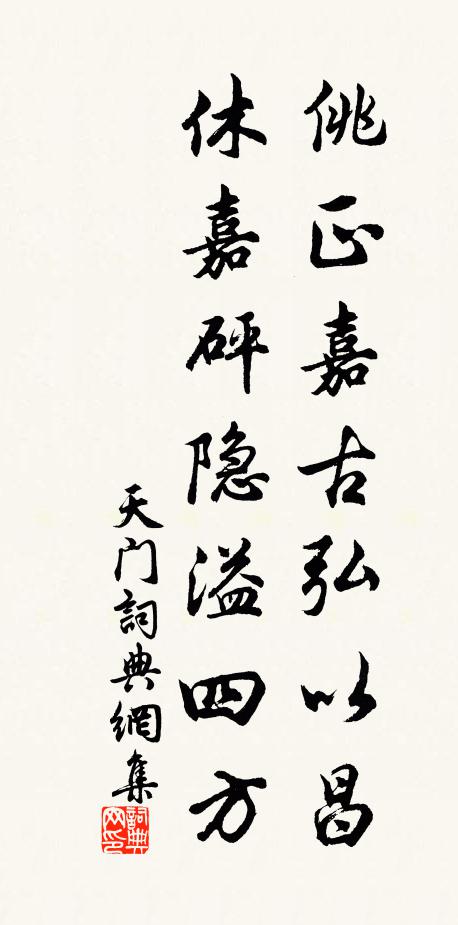 佻正嘉古弘以昌
休嘉砰隐溢四方
天门詞典網集
詞典
网印